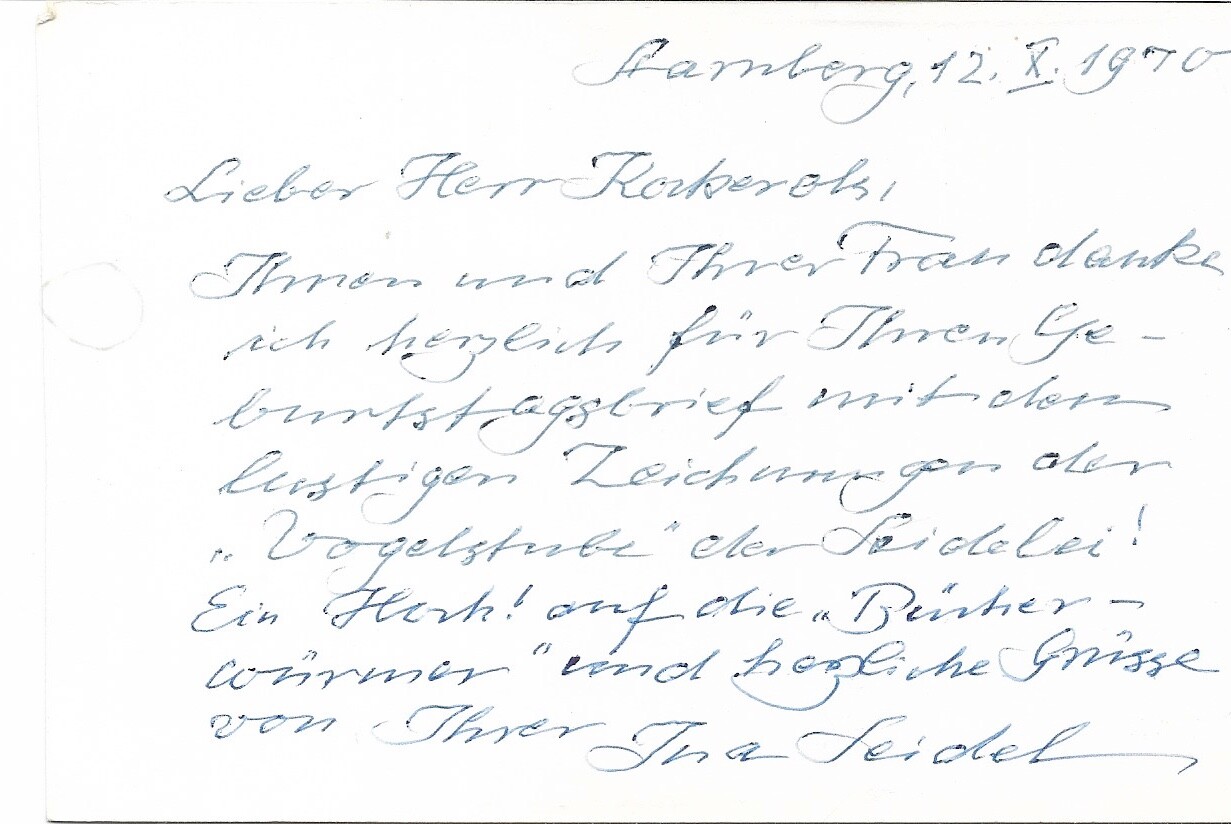 Starnberg, 12. X. 1970
Lieber Herr
Ihnen und Ihrer Frau danke
ich herzlich für Ihren Ge-
burtstagsbrief mit den
lustigen Zeichnungen der
„Vogelstube" der Seidelei!
Ein Hoch! auf die „Bücher-
würmer" und herzliche Grüsse
von Ihrer Ina Seidel